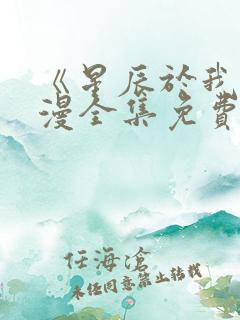 《星辰於我
漫全集免費
任海滄
未经同意禁止转载